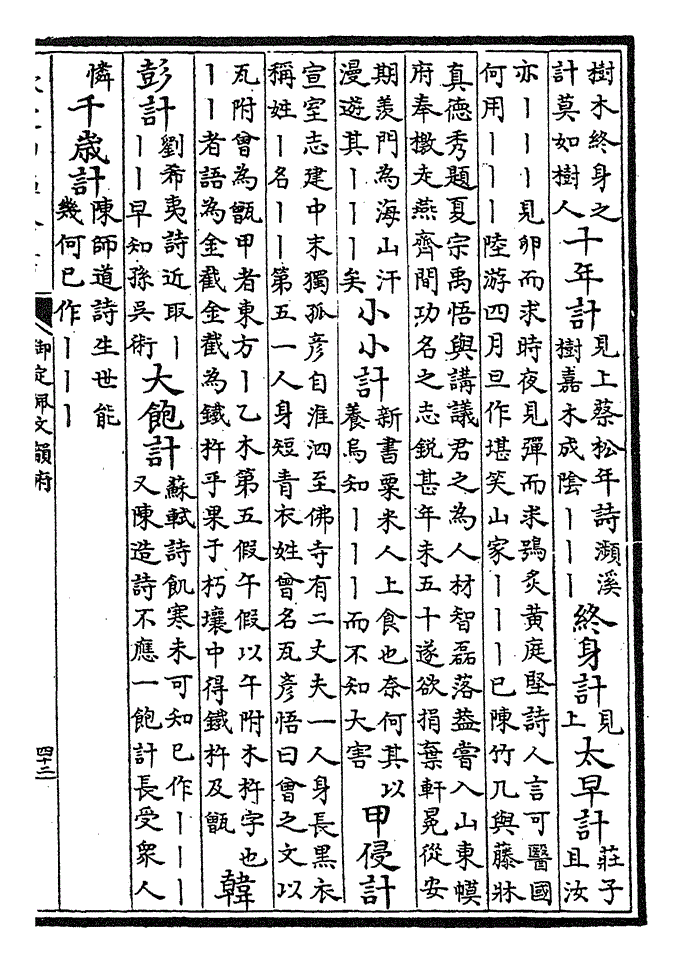 樹木終身之
計莫如樹人
十年計
見上蔡松年詩瀕溪
樹嘉木成陰丨丨丨
終身計
見
上
太早計
莊子
且汝
亦丨丨丨見卵而求時夜見彈而求鴞炙黃庭堅詩人言可醫國
何用丨丨丨陸游四月旦作堪笑山家丨丨丨已陳竹几與藤牀
真德秀題夏宗禹悟與講議君之為人材智磊落葢嘗入山東幙
府奉檄走燕齊間功名之志銳甚年未五十遂欲捐棄軒冕從安
期羨門為海山汗
漫遊其丨丨丨矣
小小計
新書粟米人上食也奈何其以
養烏知丨丨丨而不知大害
甲侵計
宣室志建中末獨孤彥自淮泗至佛寺有二丈夫一人身長黑衣
稱姓丨名丨丨第五一人身短青衣姓曾名瓦彥悟曰曾之文以
瓦附曾為甑甲者東方丨乙木第五假午假以午附木杵字也
丨丨者語為金截金截為鐵杵乎果于朽壤中得鐵杵及甑
韓
彭計
劉希夷詩近取丨
丨丨早知孫吳術
大飽計
蘇軾詩飢寒未可知已作丨丨丨
又陳造詩不應一飽計長受衆人
憐
千歲計
陳師道詩生世能
幾何已作丨丨丨
御定佩文韻府
四十三